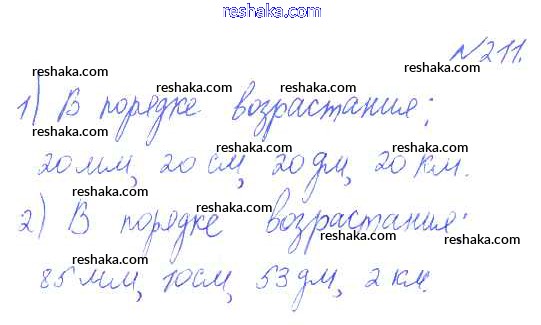 reshaka.com
№211.
reshaka.com reshaka.com reshaka.com
1) В порядке возрастания:
reshaka.com reshaka.com
20 мм, 20 см, 20 дм, 20 км.
reshaka.com reshaka.com
2) В порядке возрастания:
reshaka.com reshaka.com
85 мм, 10 см, 53 дм, 2 км.
reshaka.com reshaka.com